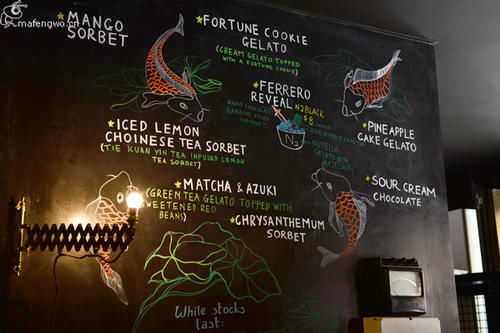 mafengwo.cn
★MANGO
SORBET
★FORTUNE COOKIE
GELATO
(CREAM GELATO TOPPED
WITH A FORTUNE COOKIE)
★FERRERO
REVEAL
N2BLACK
$8
WARM CHOCOLATE
GANACHE
N2
NUTELLA
GELATO WITH
HAZELNUTS
★PINEAPPLE
CAKE GELATO
★ICED LEMON
CHOINESE TEA SORBET
(TIE KUAN YIN TEA INFUSED LEMON
TEA SORBET)
★MATCHA & AZUKI
(GREEN TEA GELATO TOPPED WITH
SWEETENED RED
BEANS)
★SOUR CREAM
CHOCOLATE
★CHRYSANTHEMUM
SORBET
While stocks
last!